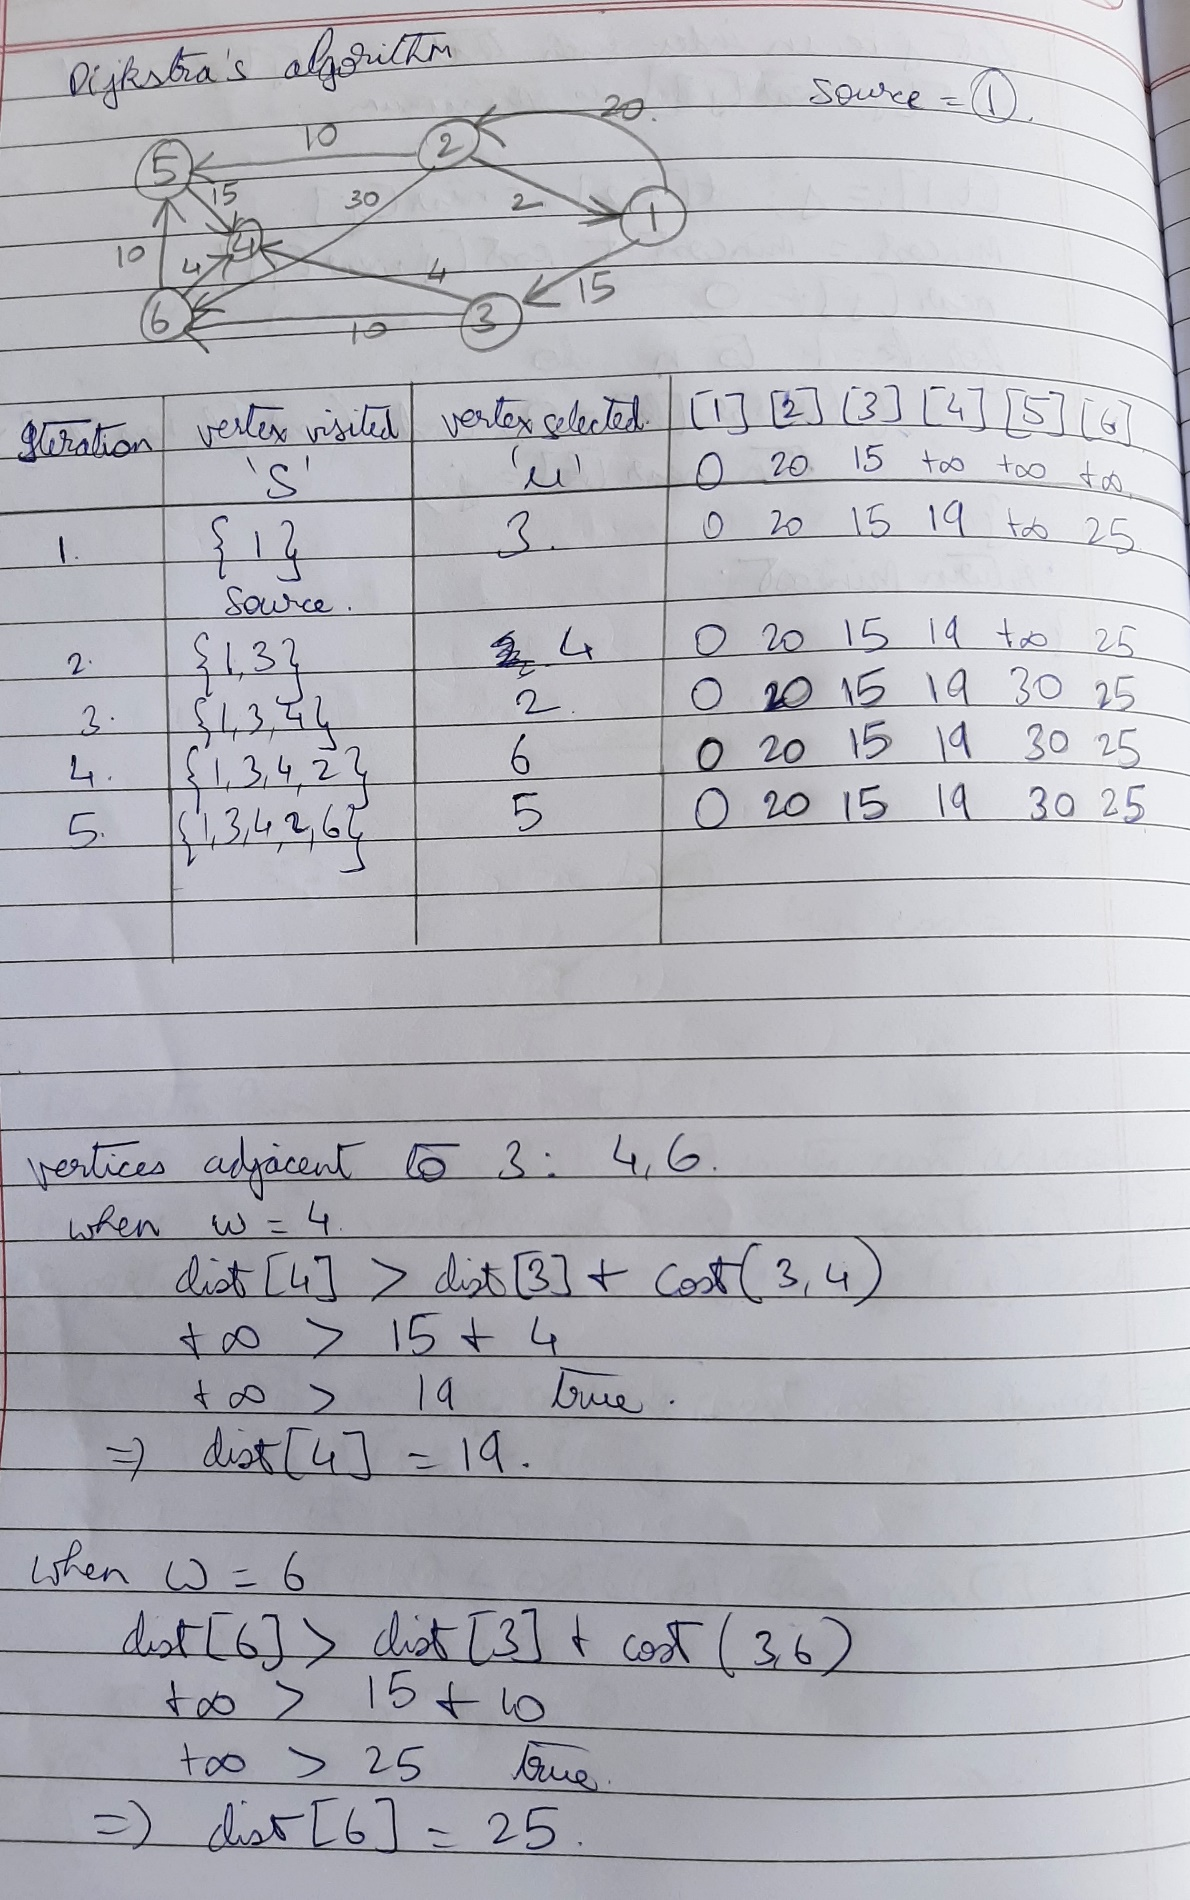 Dijkstra's algorithm
Source = 1.
20.
10
5
2
15
30
2
1
4
10
4
4
15
6
10
3
Iteration vertex visited vertex selected. [1] [2] [3] [4] [5] [6]
'S' 'u' 0 20 15 +∞ +∞ +∞
1. {1} 3. 0 20 15 19 +∞ 25
Source.
2. {1,3} 4 0 20 15 19 +∞ 25
3. {1,3,4} 2. 0 20 15 19 30 25
4. {1,3,4,2} 6 0 20 15 19 30 25
5. {1,3,4,2,6} 5 0 20 15 19 30 25
vertices adjacent to 3: 4,6.
when w = 4.
dist[4] > dist[3] + cost(3,4)
+∞ > 15 + 4
+∞ > 19 true.
=> dist[4] = 19.
when w = 6
dist[6] > dist[3] + cost(3,6)
+∞ > 15 + 10
+∞ > 25 true.
=> dist[6] = 25.